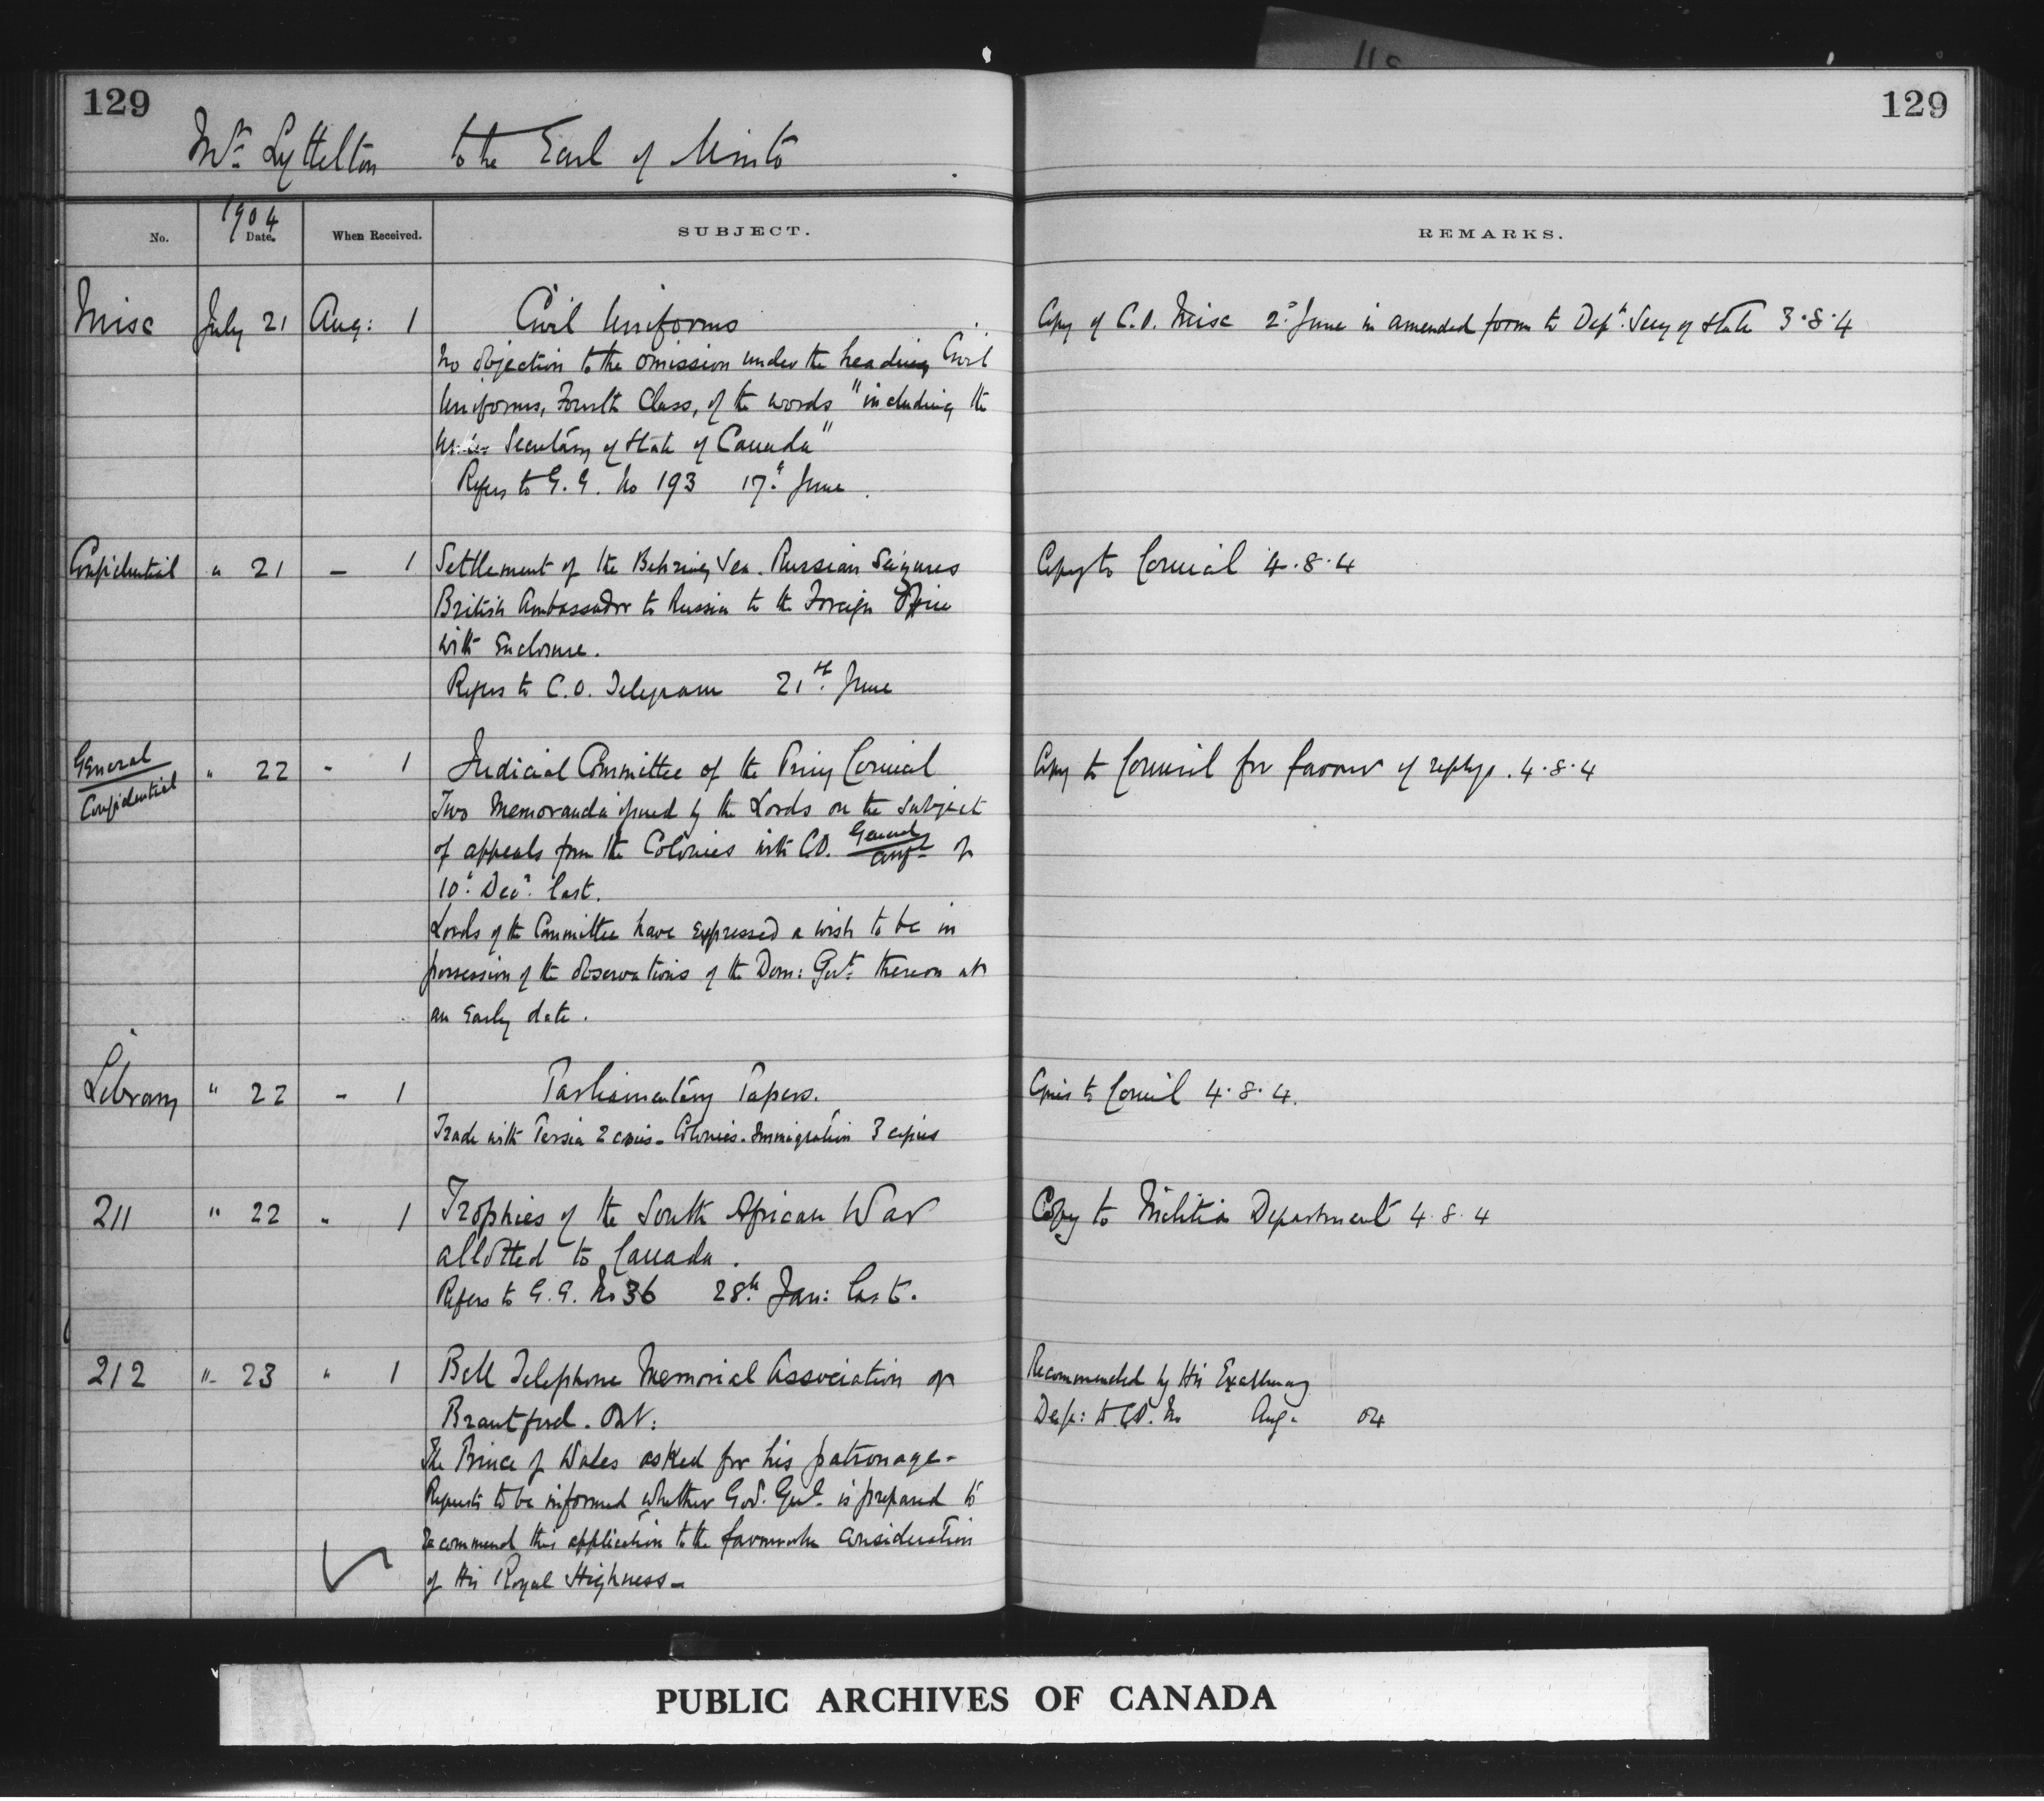 129
129
Mr. Lyttelton to the Earl of Minto
No.
1904
Date.
When Received.
SUBJECT.
REMARKS.
Misc July 21 Aug: 1 Civil Uniforms
Copy of C.O. Misc 2d June in amended form to Dept. Secy of State 3.8.4
No objection to the omission under the heading Civil
Uniforms, Fourth Class, of the words "including the
Under Secretary of State of Canada"
Refers to G.G. No 193 17th June.
Confidential " 21 - 1 Settlement of the Behring Sea. Russian Seizures
Copy to Council 4.8.4
British Ambassador to Russia to the Foreign Office
with Enclosure.
Refers to C.O. Telegram 21st June
General
Confidential
" 22 - 1 Judicial Committee of the Privy Council
Copy to Council for favour of reply. 4.8.4
Two Memoranda issued by the Lords on the subject
of appeals from the Colonies with C.O. General
Conf- of
10th Decr. last.
Lords of the Committee have expressed a wish to be in
possession of the observations of the Dom: Govt. thereon at
an early date.
Library " 22 - 1 Parliamentary Papers.
Copies to Council 4.8.4.
Trade with Persia 2 copies - Colonies - Immigration 3 copies
211 " 22 " 1 Trophies of the South African War
Copy to Militia Department 4.8.4
allotted to Canada.
Refers to G.G. No 36 28th Jan: last.
212 " 23 " 1 Bell Telephone Memorial Association of
Recommended by His Excellency
Brantford. Ont:
Desp: to C.O. No Aug. 04
The Prince of Wales asked for his patronage -
Requests to be informed whether Gov. Genl. is prepared to
recommend this application to the favourable consideration
of His Royal Highness -
PUBLIC ARCHIVES OF CANADA